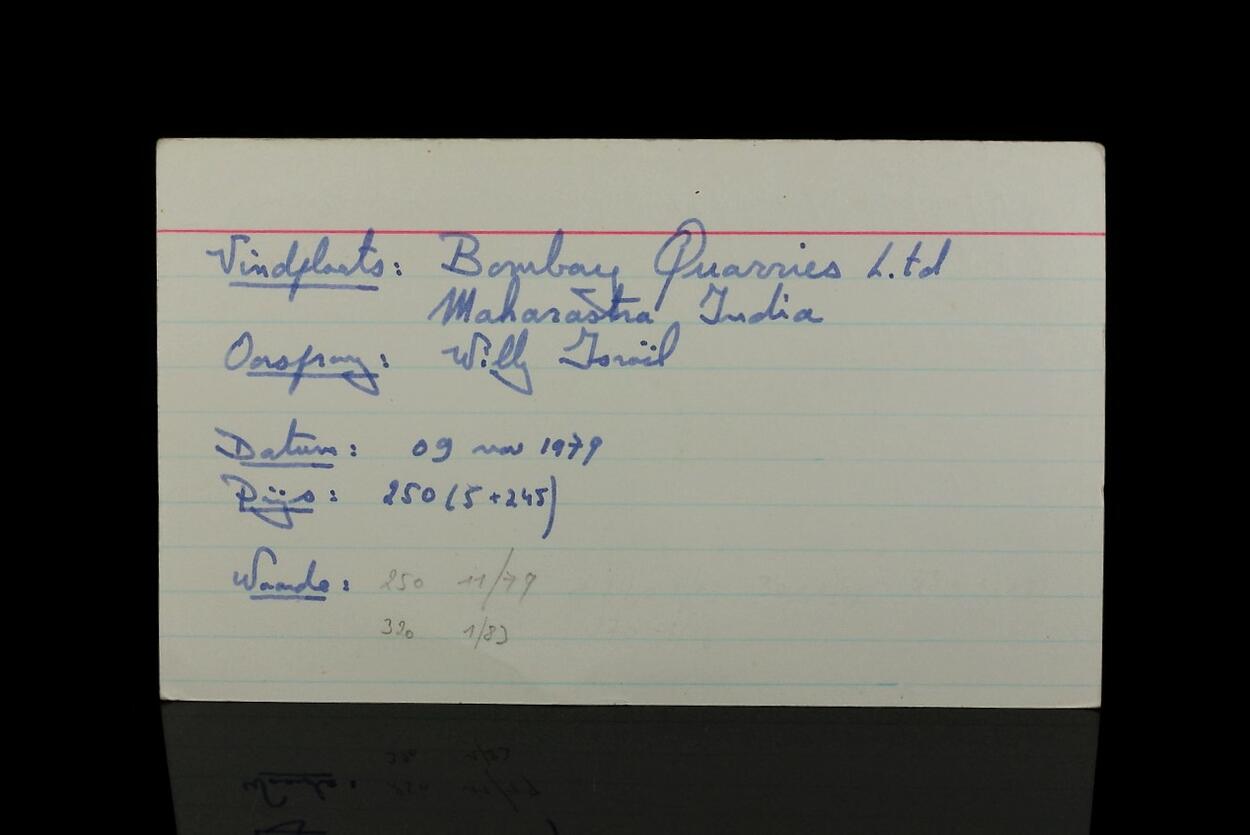 Vindplaats: Bombay Quarries Ltd
Maharastra India
Oorsprong: Willy Israël
Datum: 09 nov 1979
Prijs: 250 (5+245)
Waarde: 250 11/79
320 1/83